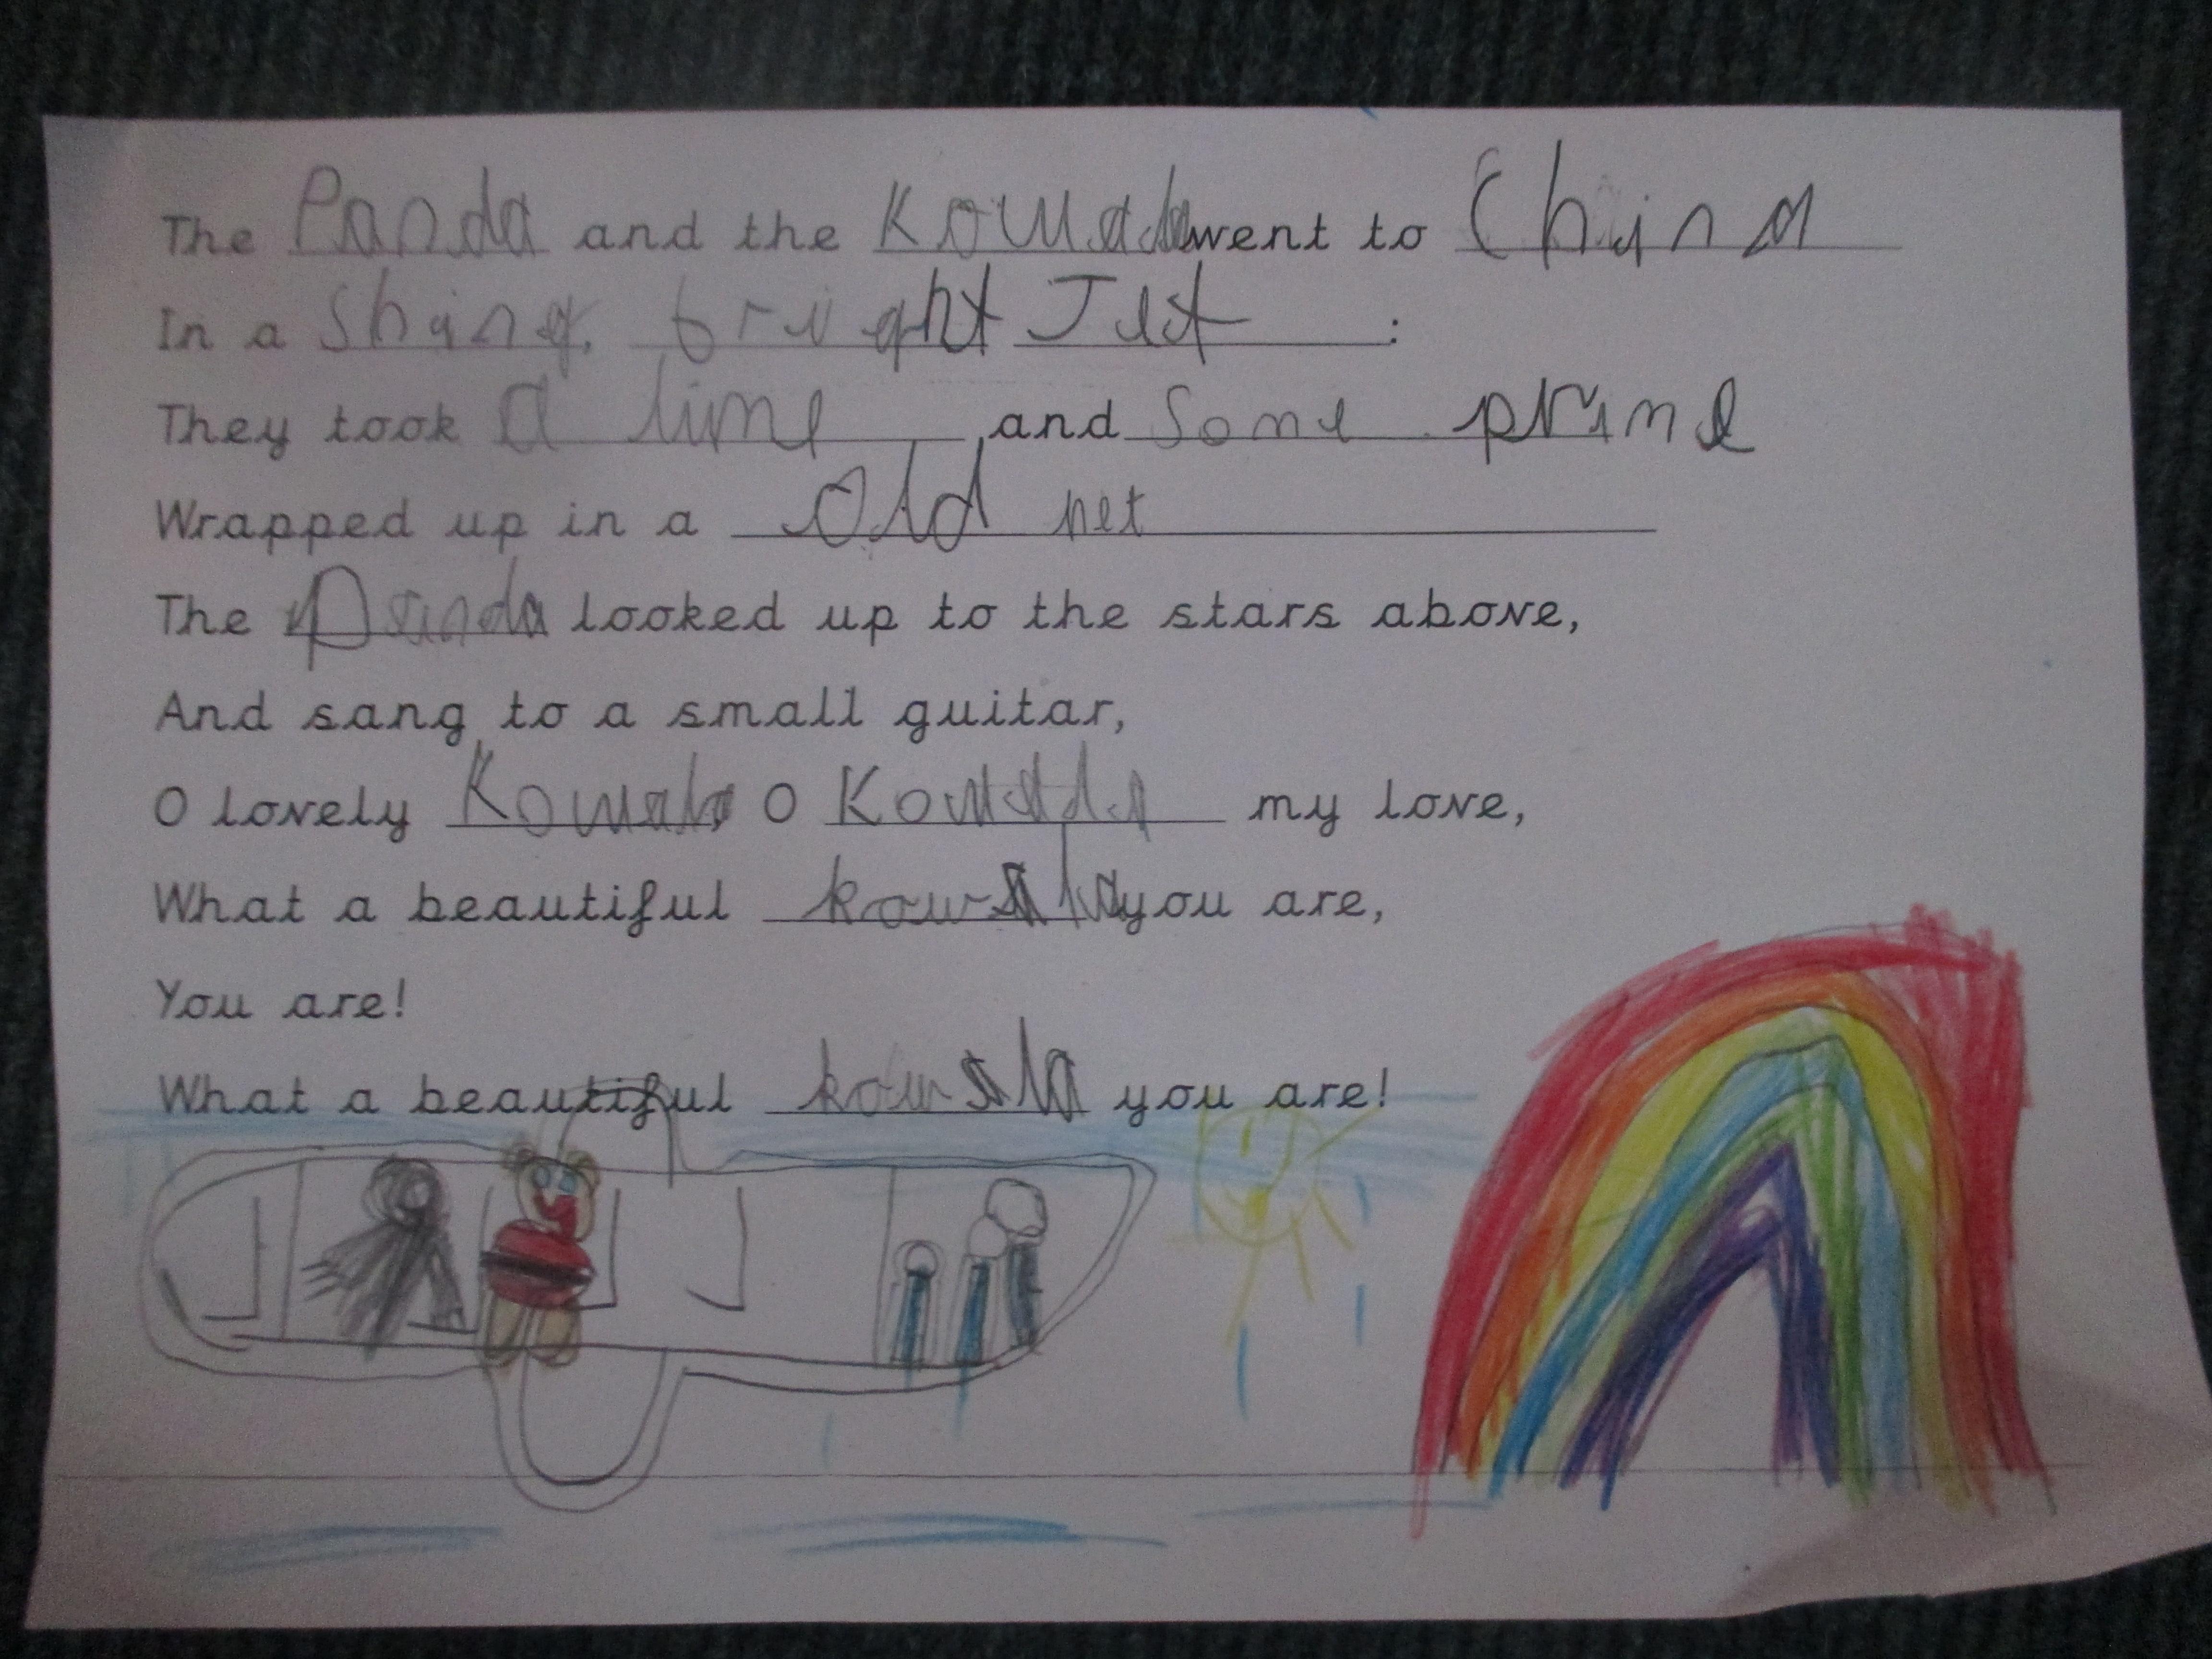 The Panda and the Kowala went to China
In a Shing, bright Jet :
They took a lime, and Some prime
Wrapped up in a old net
The Panda looked up to the stars above,
And sang to a small guitar,
O lovely Kowala, O Kowala my love,
What a beautiful kowala you are,
You are!
What a beautiful kowala you are!